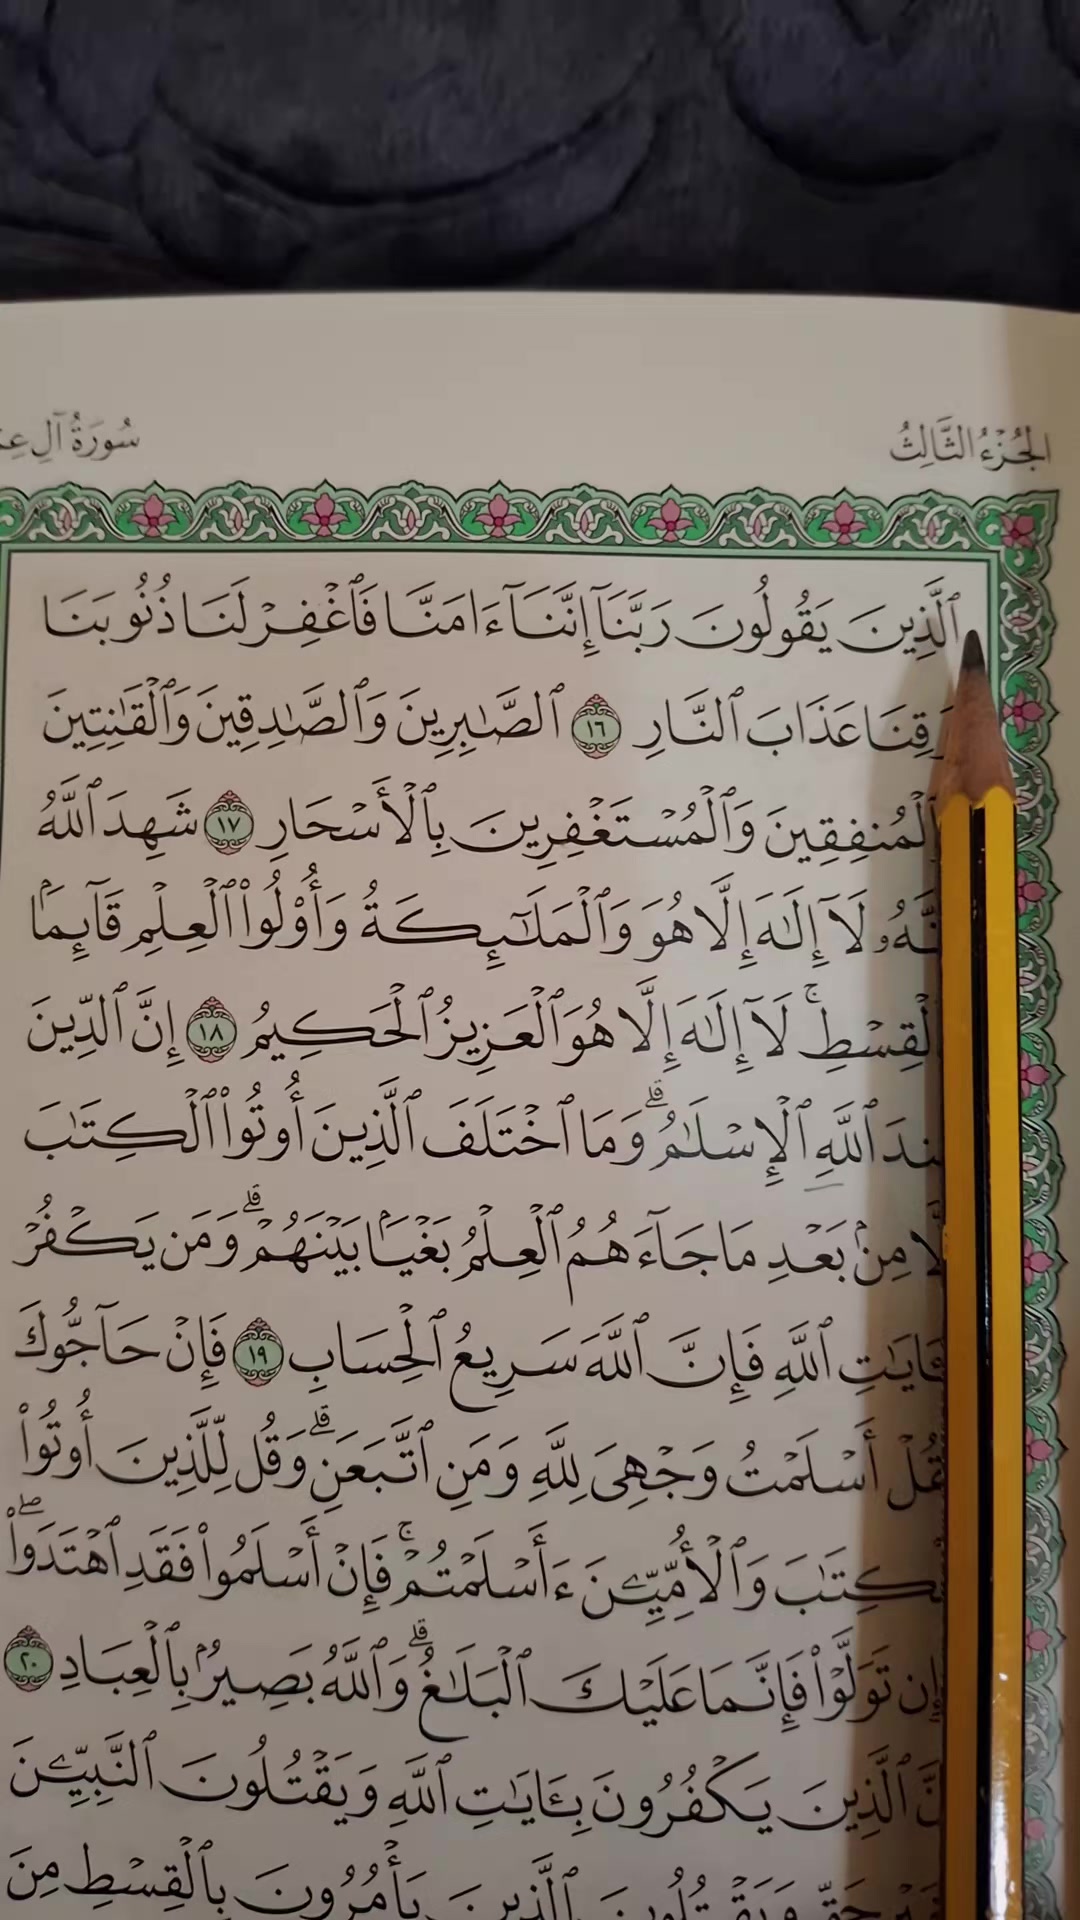 الجُزْءُ الثَّالِثُ سُورَةُ آلِ
ٱلَّذِينَ يَقُولُونَ رَبَّنَآ إِنَّنَآ ءَامَنَّا فَٱغْفِرْ لَنَا ذُنُوبَنَا
وَقِنَا عَذَابَ ٱلنَّارِ ١٦ ٱلصَّٰبِرِينَ وَٱلصَّٰدِقِينَ وَٱلْقَٰنِتِينَ
وَٱلْمُنفِقِينَ وَٱلْمُسْتَغْفِرِينَ بِٱلْأَسْحَارِ ١٧ شَهِدَ ٱللَّهُ
أَنَّهُۥ لَآ إِلَٰهَ إِلَّا هُوَ وَٱلْمَلَٰٓئِكَةُ وَأُو۟لُوا۟ ٱلْعِلْمِ قَآئِمًۢا
بِٱلْقِسْطِ ۚ لَآ إِلَٰهَ إِلَّا هُوَ ٱلْعَزِيزُ ٱلْحَكِيمُ ١٨ إِنَّ ٱلدِّينَ
عِندَ ٱللَّهِ ٱلْإِسْلَٰمُ ۗ وَمَا ٱخْتَلَفَ ٱلَّذِينَ أُوتُوا۟ ٱلْكِتَٰبَ
إِلَّا مِنۢ بَعْدِ مَا جَآءَهُمُ ٱلْعِلْمُ بَغْيًۢا بَيْنَهُمْ ۗ وَمَن يَكْفُرْ
بِـَٔايَٰتِ ٱللَّهِ فَإِنَّ ٱللَّهَ سَرِيعُ ٱلْحِسَابِ ١٩ فَإِنْ حَآجُّوكَ
فَقُلْ أَسْلَمْتُ وَجْهِىَ لِلَّهِ وَمَنِ ٱتَّبَعَنِ ۗ وَقُل لِّلَّذِينَ أُوتُوا۟
ٱلْكِتَٰبَ وَٱلْأُمِّيِّـۧنَ ءَأَسْلَمْتُمْ ۚ فَإِنْ أَسْلَمُوا۟ فَقَدِ ٱهْتَدَوا۟ ۖ
وَّإِن تَوَلَّوْا۟ فَإِنَّمَا عَلَيْكَ ٱلْبَلَٰغُ ۗ وَٱللَّهُ بَصِيرٌۢ بِٱلْعِبَادِ ٢٠
إِنَّ ٱلَّذِينَ يَكْفُرُونَ بِـَٔايَٰتِ ٱللَّهِ وَيَقْتُلُونَ ٱلنَّبِيِّـۧنَ
بِغَيْرِ حَقٍّ وَيَقْتُلُونَ ٱلَّذِينَ يَأْمُرُونَ بِٱلْقِسْطِ مِنَ